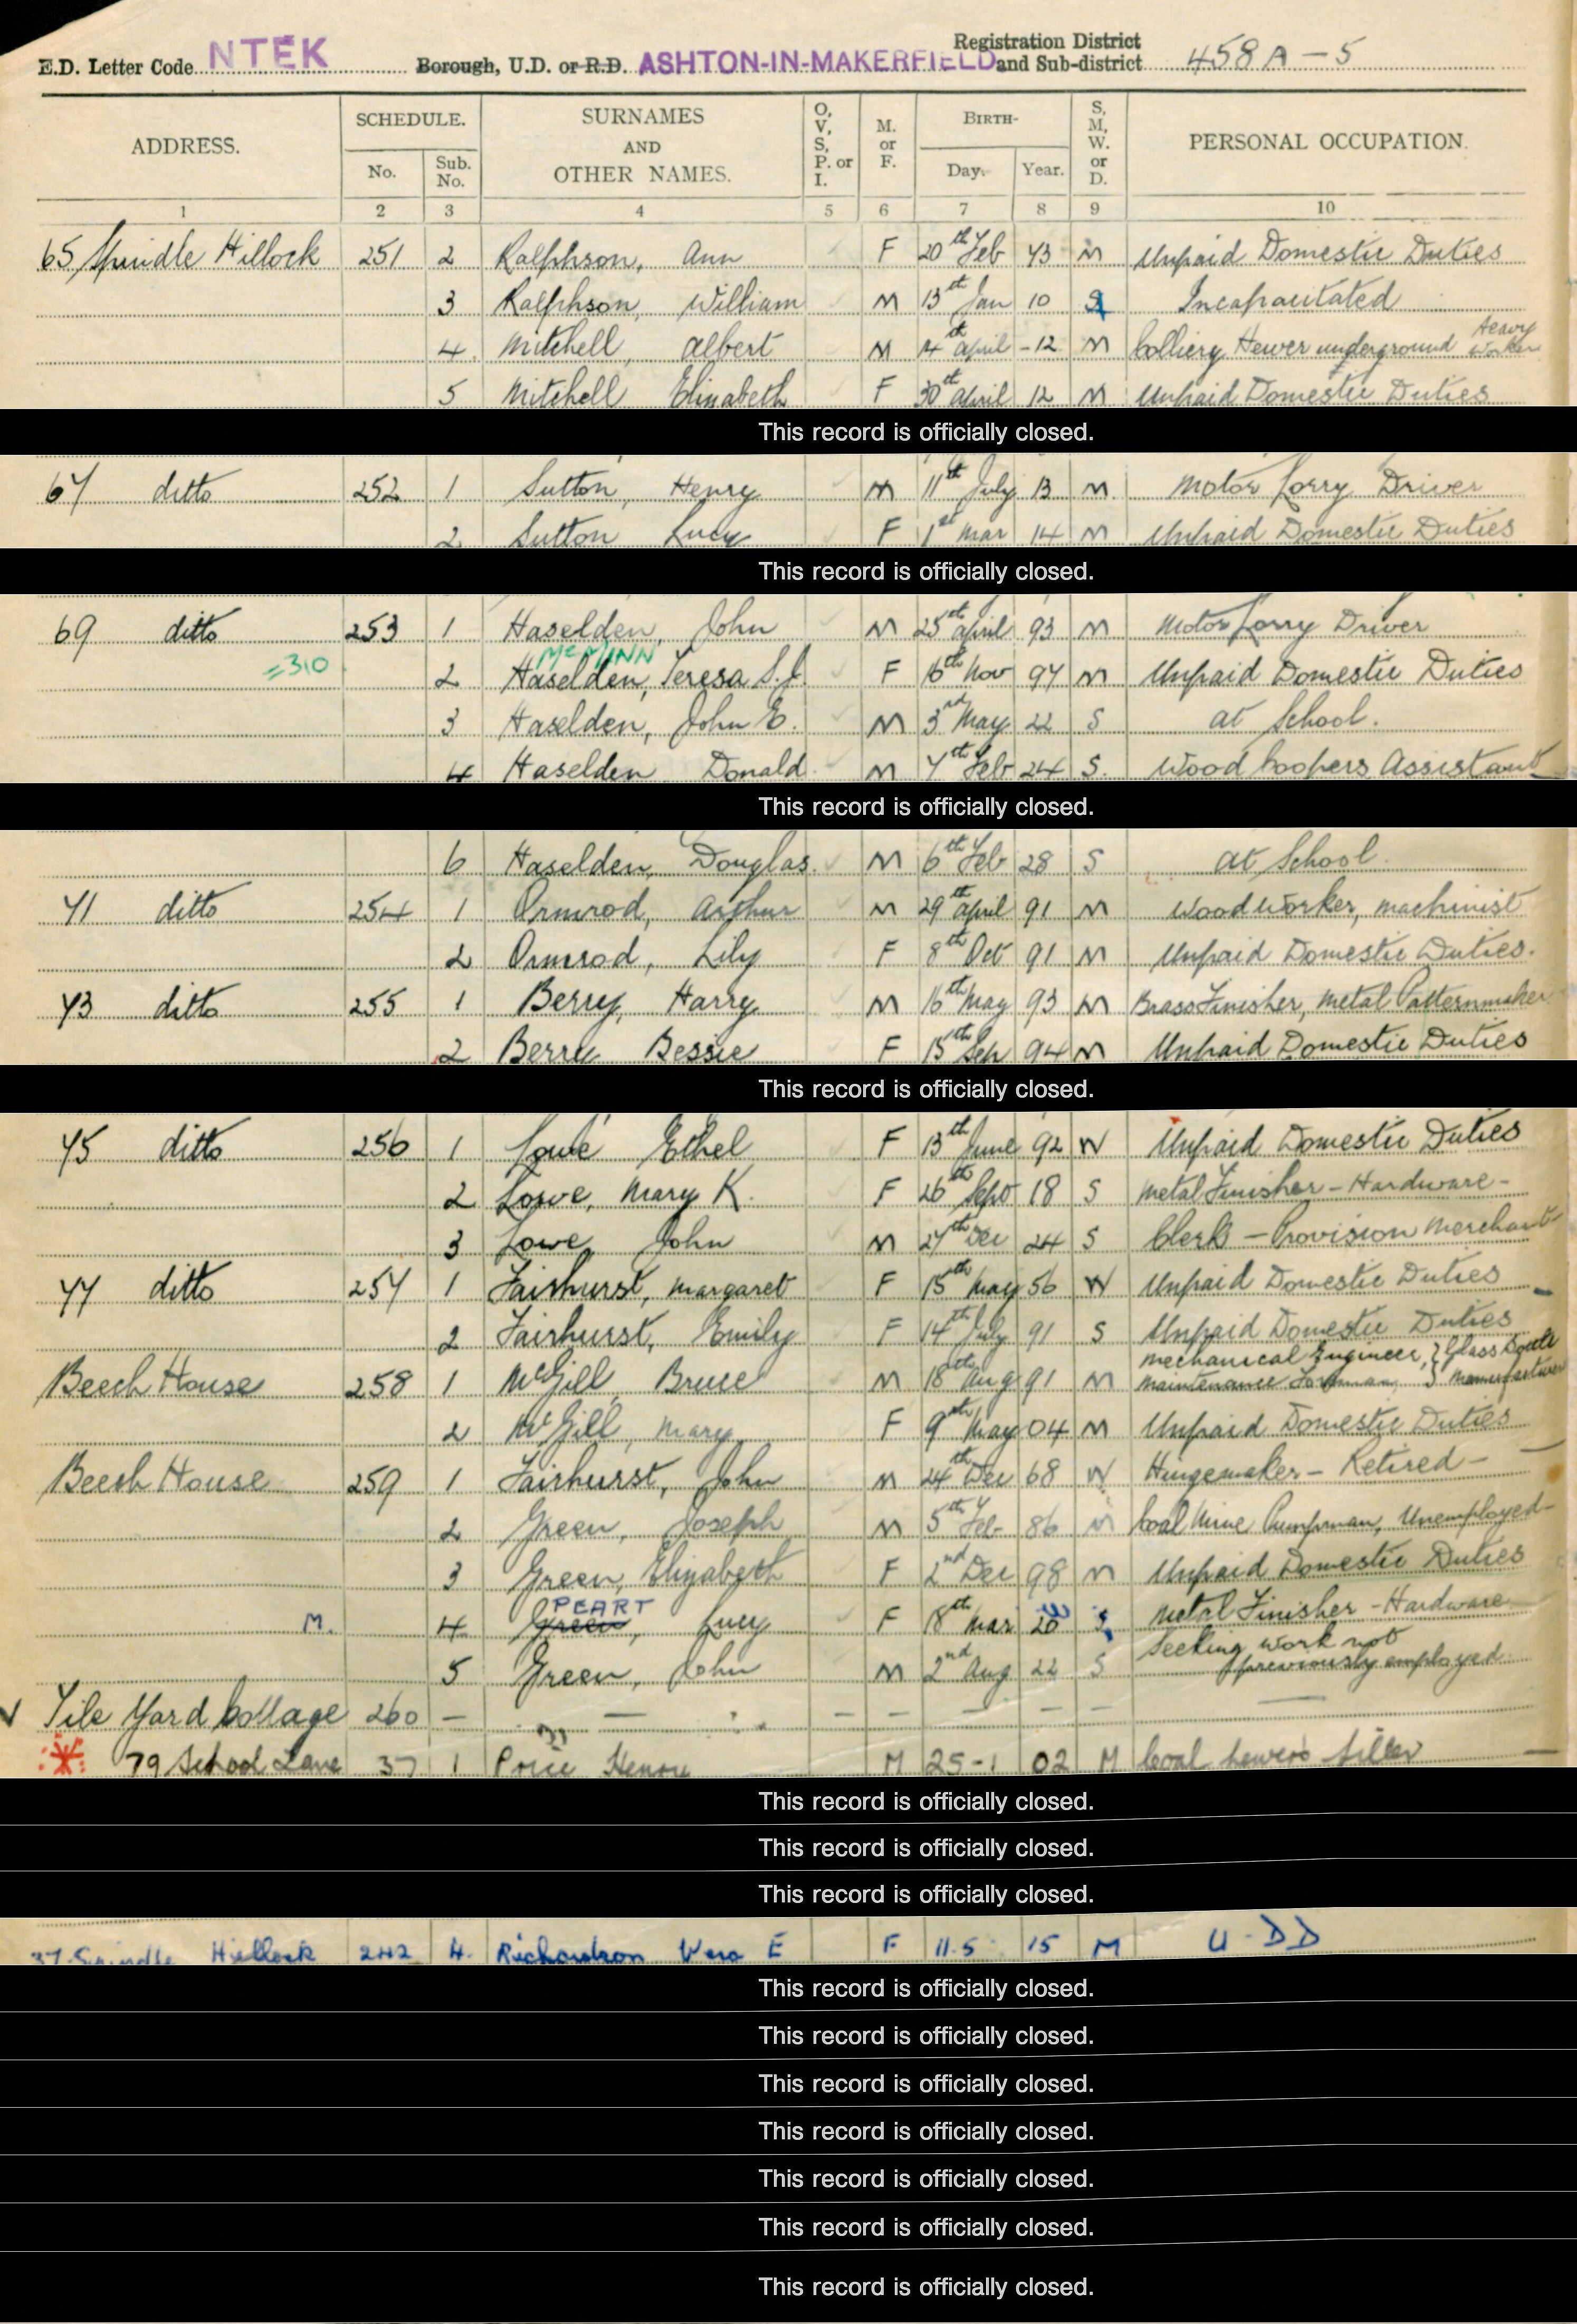 E.D. Letter Code NTEK Borough, U.D. or R.D. ASHTON-IN-MAKERFIELD Registration District and Sub-district 458A-5
ADDRESS. SCHEDULE. No. Sub. No. SURNAMES AND OTHER NAMES. O, V, S, P. or I. M. or F. BIRTH- Day. Year. S, M, W. or D. PERSONAL OCCUPATION.
1 2 3 4 5 6 7 8 9 10
65 Spindle Hillock 251 2 Ralphson, Ann F 20th Feb 73 M Unpaid Domestic Duties
3 Ralphson, William M 13th Jan 10 S Incapacitated
4. Mitchell, Albert M 4th April -12 M Colliery Hewer underground Heavy Worker
5 Mitchell Elizabeth F 30th April 12 M Unpaid Domestic Duties
This record is officially closed.
67 ditto 252 1 Sutton, Henry M 11th July 13 M. Motor Lorry Driver
2 Sutton Lucy F 1st Mar 14 M Unpaid Domestic Duties
This record is officially closed.
69 ditto 253 1 Haselden, John M 25th April 93 M Motor Lorry Driver
=310 2 McMINN Haselden, Teresa S.J. F 16th Nov 97 M Unpaid Domestic Duties
3 Haselden, John E. M 3rd May 22 S at School.
4 Haselden Donald M 7th Feb 24 S. Wood Coopers Assistant
This record is officially closed.
6 Haselden, Douglas. M 6th Feb 28 S at School.
71 ditto 254 1 Ormrod, Arthur M 29th April 91 M Woodworker, Machinist
2 Ormrod, Lily F 8th Oct 91 M Unpaid Domestic Duties.
73 ditto 255 1 Berry, Harry M 16th May 93 M Brass Finisher, Metal Patternmaker
2 Berry Bessie F 15th Sep 94 M Unpaid Domestic Duties
This record is officially closed.
75 ditto 256 1 Lowe Ethel F 13th June 92 W Unpaid Domestic Duties
2 Lowe, Mary K. F 26th Sept 18 S Metal Finisher - Hardware -
3 Lowe, John M 27th Dec 24 S Clerk - Provision Merchant
77 ditto 257 1 Fairhurst, Margaret F 15th May 56 W Unpaid Domestic Duties
2 Fairhurst, Emily F 14th July 91 S Unpaid Domestic Duties
Beech House 258 1 McGill, Bruce M 18th Aug 91 M Mechanical Engineer, Maintenance Foreman, } Glass Bottle Manufacture
2 McGill, Mary F 9th May 04 M Unpaid Domestic Duties
Beech House 259 1 Fairhurst, John M 24th Dec 68 W Hingemaker - Retired -
2 Green, Joseph M 5th Feb 86 M Coal Mine Pumpman, Unemployed
3 Green, Elizabeth F 2nd Dec 98 M Unpaid Domestic Duties
M. 4 PEART Green, Lucy F 18th Mar 20 S Metal Finisher - Hardware
5 Green, John M 2nd Aug 22 S Seeking work not previously employed.
Tile Yard Cottage 260 - - - - - - -
79 School Lane 37 1 Price Henry M 25-1 02 M Coal hewers filler
This record is officially closed.
This record is officially closed.
This record is officially closed.
37 Spindle Hillock 242 4. Richardson Vera E F 11.5 15 M U.D.D
This record is officially closed.
This record is officially closed.
This record is officially closed.
This record is officially closed.
This record is officially closed.
This record is officially closed.
This record is officially closed.